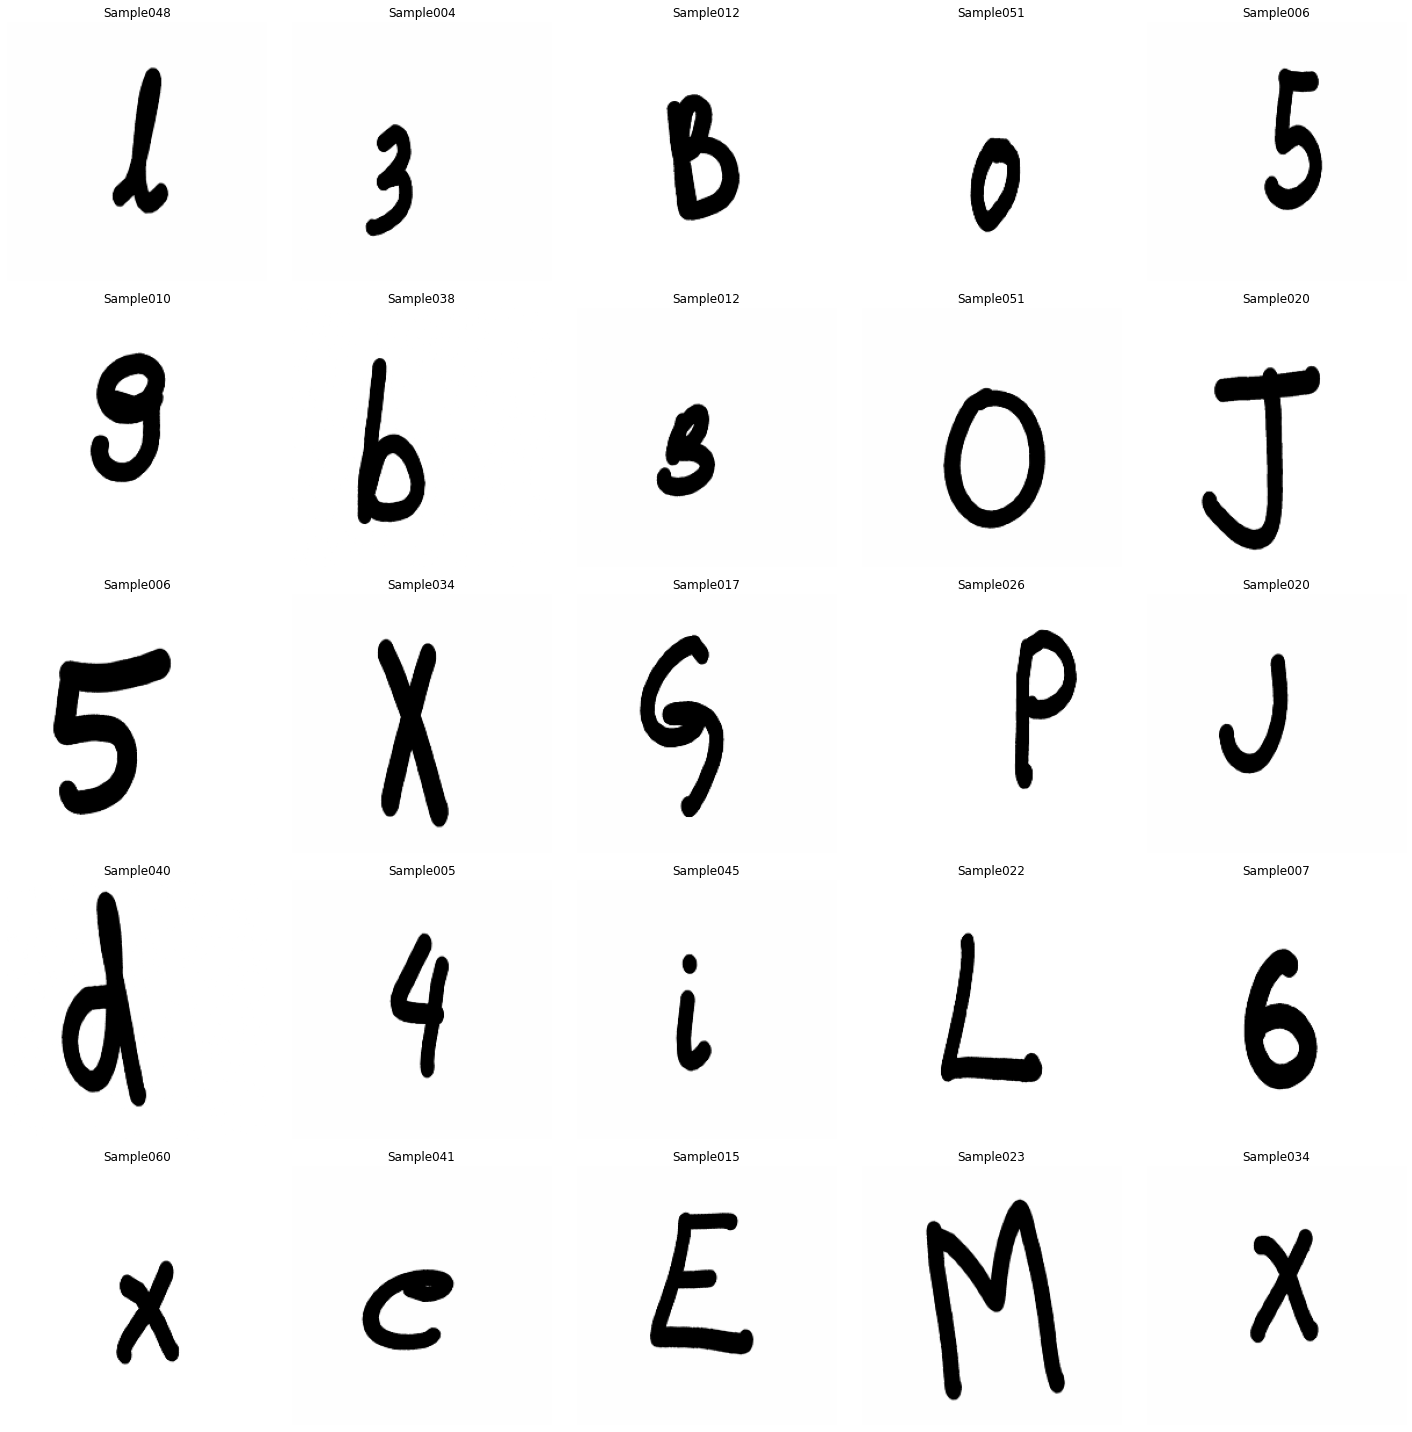 Sample048 Sample004 Sample012 Sample051 Sample006
l 3 B o 5
Sample010 Sample038 Sample012 Sample051 Sample020
9 b B o J
Sample006 Sample034 Sample017 Sample026 Sample020
5 X G P J
Sample040 Sample005 Sample045 Sample022 Sample007
d 4 i L 6
Sample060 Sample041 Sample015 Sample023 Sample034
x e E M X